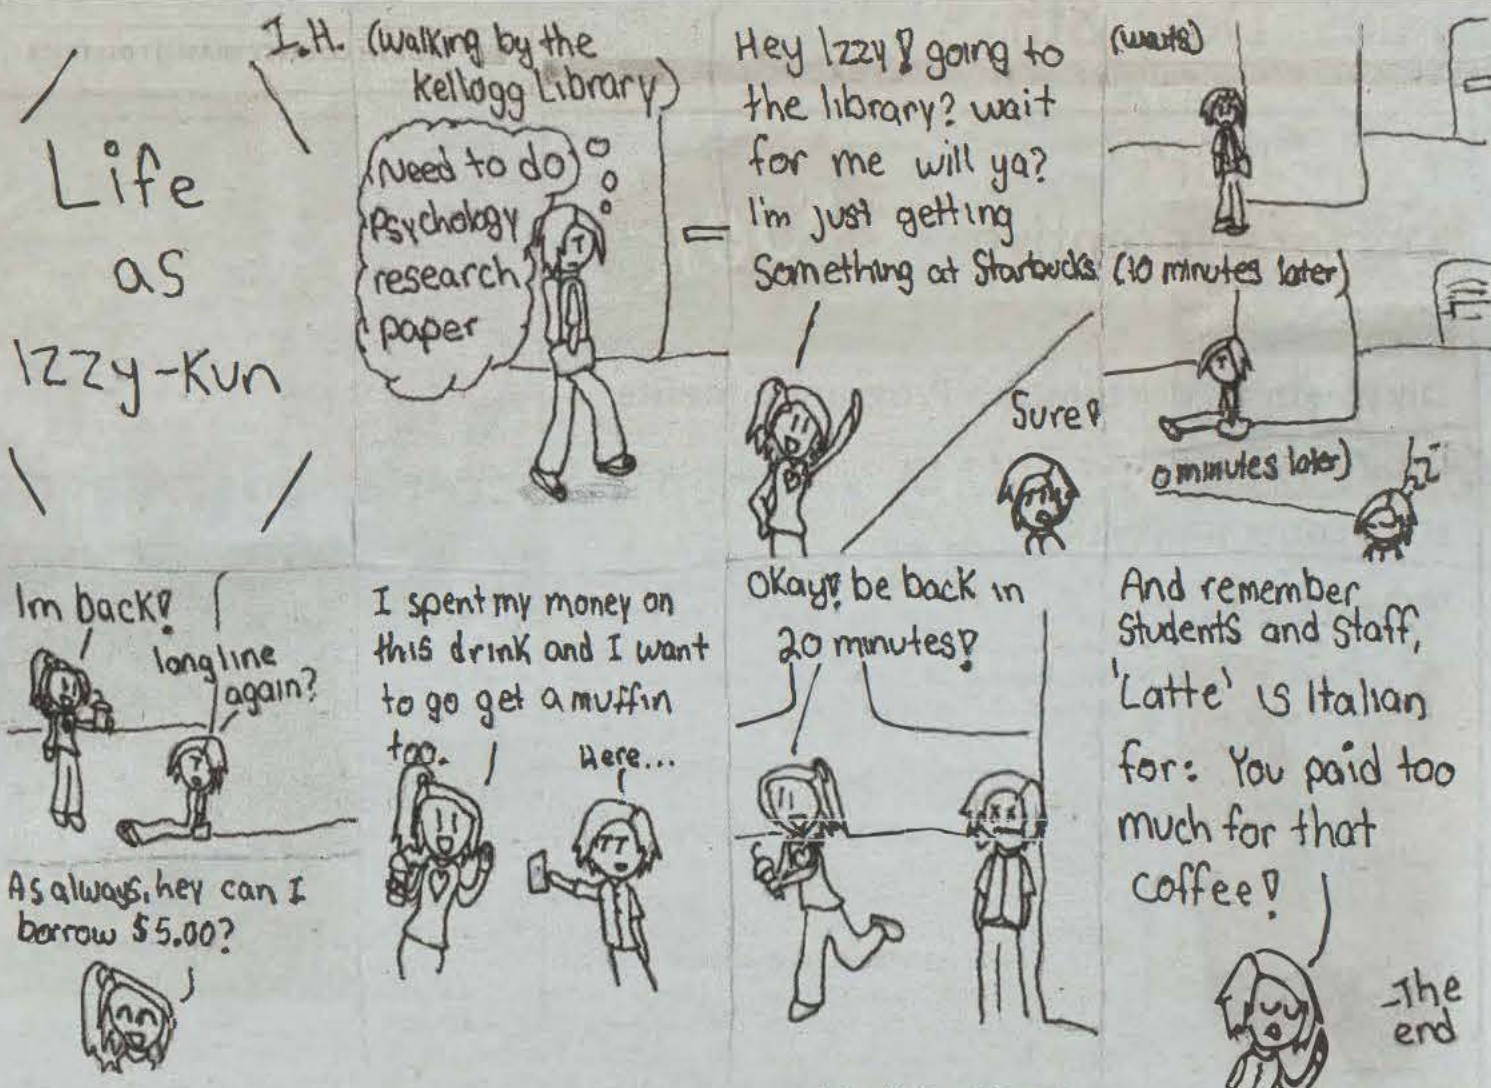 Life
as
Izzy-Kun
I.H. (walking by the
Kellogg Library)
(Need to do
Psychology
research
paper
Hey Izzy! going to
the library? wait
for me will ya?
I'm just getting
Something at Starbucks
Sure!
(waits)
(10 minutes later)
0 minutes later)
zz
Im back!
long line
again?
As always, hey can I
borrow $5.00?
I spent my money on
this drink and I want
to go get a muffin
too.
Here...
Okay! be back in
20 minutes!
And remember
Students and Staff,
'Latte' is Italian
for: You paid too
much for that
coffee!
-The
end